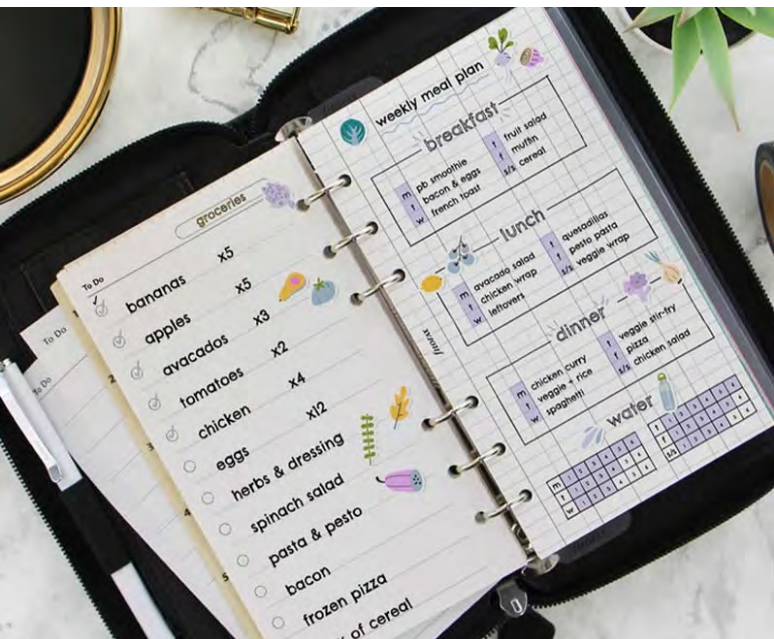 To Do
groceries
bananas x5
apples x5
avacados x3
tomatoes x2
chicken x4
eggs x12
herbs & dressing
spinach salad
pasta & pesto
bacon
frozen pizza
of cereal
To Do
To Do
weekly meal plan
breakfast
m pb smoothie
t bacon & eggs
w french toast
t fruit salad
f muffin
s/s cereal
lunch
m avacado salad
t chicken wrap
w leftovers
t quesadillas
f pesto pasta
s/s veggie wrap
dinner
m chicken curry
t veggie + rice
w spaghetti
t veggie stir-fry
f pizza
s/s chicken salad
water
m 1 2 3 4 5 6
t 1 2 3 4 5 6
w 1 2 3 4 5 6
t 1 2 3 4 5 6
f 1 2 3 4 5 6
s/s 1 2 3 4 5 6
filofax